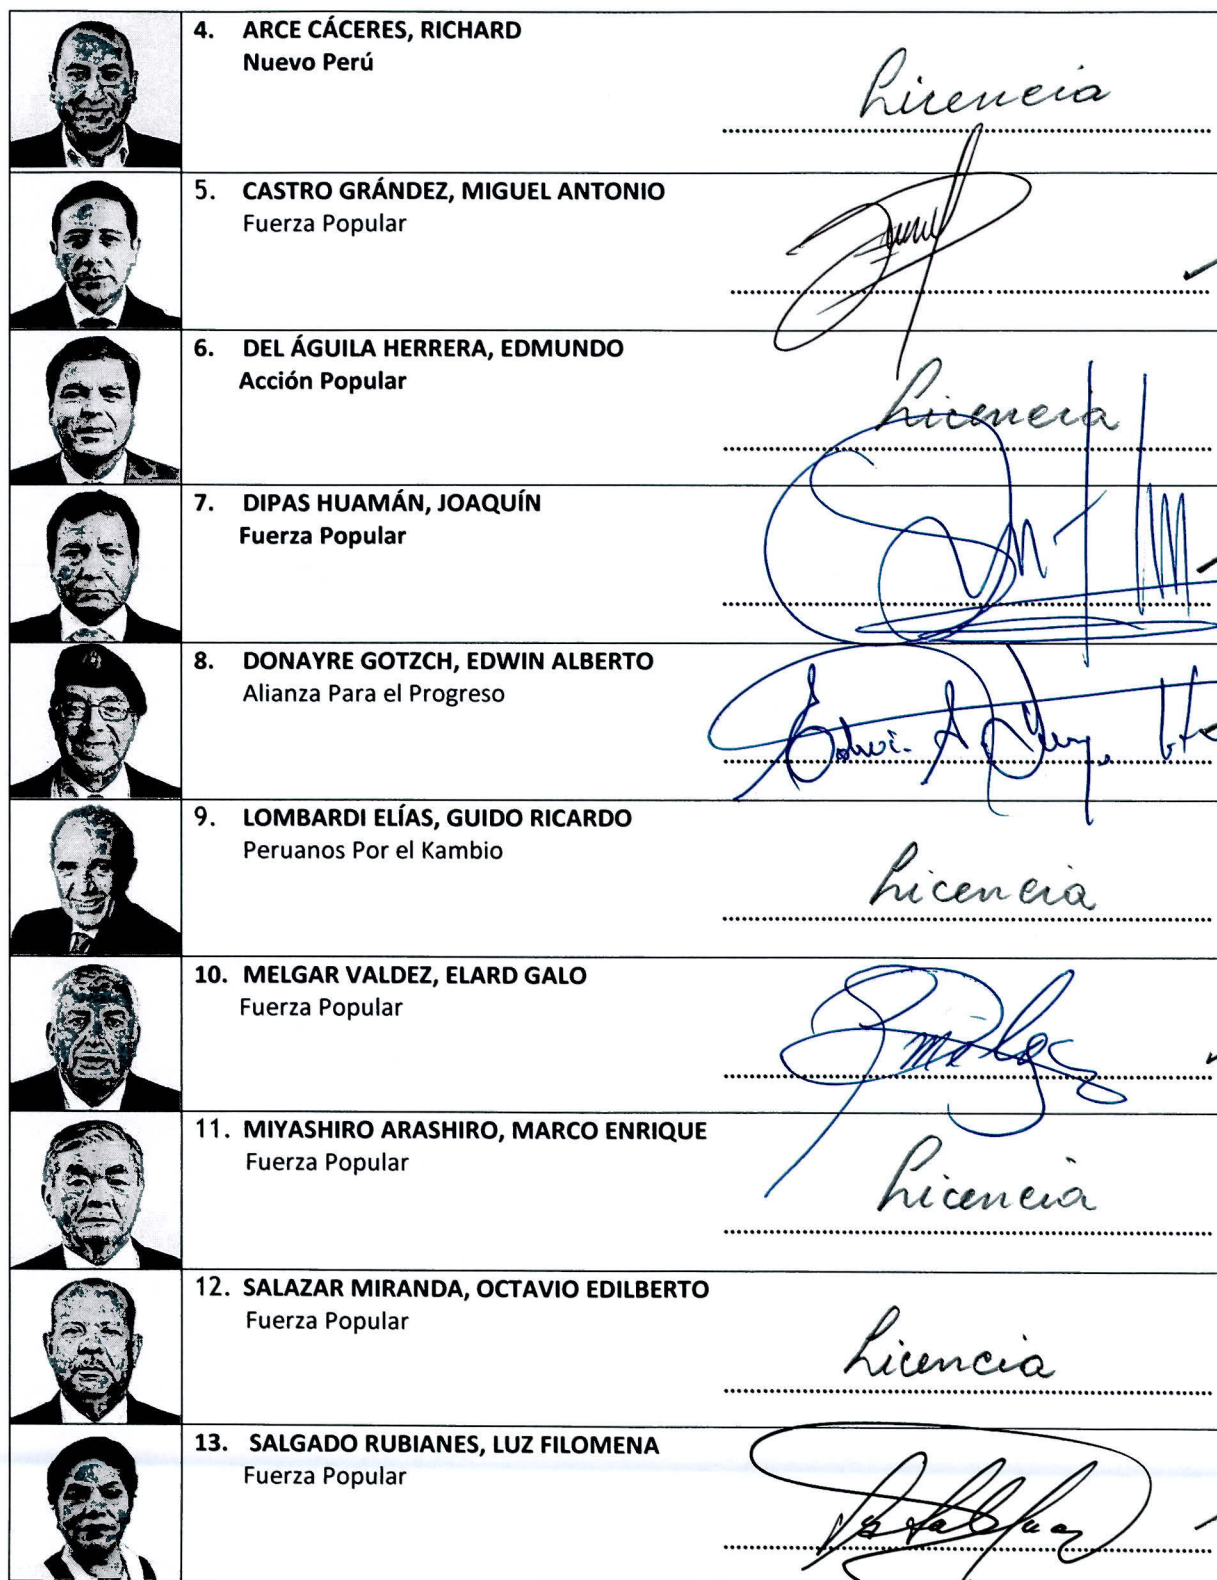 4. ARCE CÁCERES, RICHARD
Nuevo Perú
Licencia
5. CASTRO GRÁNDEZ, MIGUEL ANTONIO
Fuerza Popular
6. DEL ÁGUILA HERRERA, EDMUNDO
Acción Popular
Licencia
7. DIPAS HUAMÁN, JOAQUÍN
Fuerza Popular
8. DONAYRE GOTZCH, EDWIN ALBERTO
Alianza Para el Progreso
9. LOMBARDI ELÍAS, GUIDO RICARDO
Peruanos Por el Kambio
Licencia
10. MELGAR VALDEZ, ELARD GALO
Fuerza Popular
11. MIYASHIRO ARASHIRO, MARCO ENRIQUE
Fuerza Popular
Licencia
12. SALAZAR MIRANDA, OCTAVIO EDILBERTO
Fuerza Popular
Licencia
13. SALGADO RUBIANES, LUZ FILOMENA
Fuerza Popular